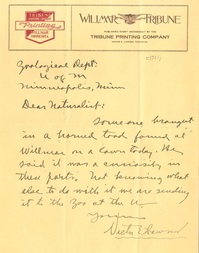 Printing
WILLMAR
WILLMAR TRIBUNE
TRIBUNE PRINTING COMPANY
Zoological Dept.
U of M
Minneapolis, Minn
Dear Naturalist:
Someone brought
in a horned toad found at
Willmar on a lawn today. He
said it was a curiosity in
these parts. Not knowing what
else to do with it we are sending
it to the Zoo at the U.
Yours
Victor